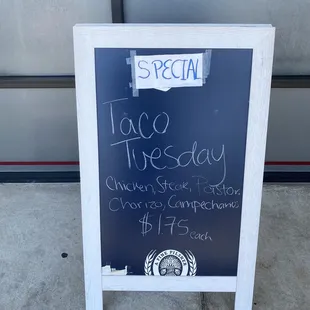 SPECIAL
Taco
Tuesday
Chicken, Steak, Pastor,
Chorizo, Campechanos
$1.75 each